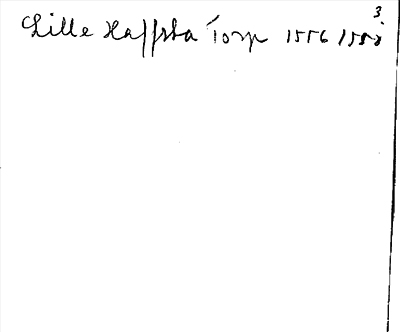 3
Lille Haffsba Torp 1556 1558